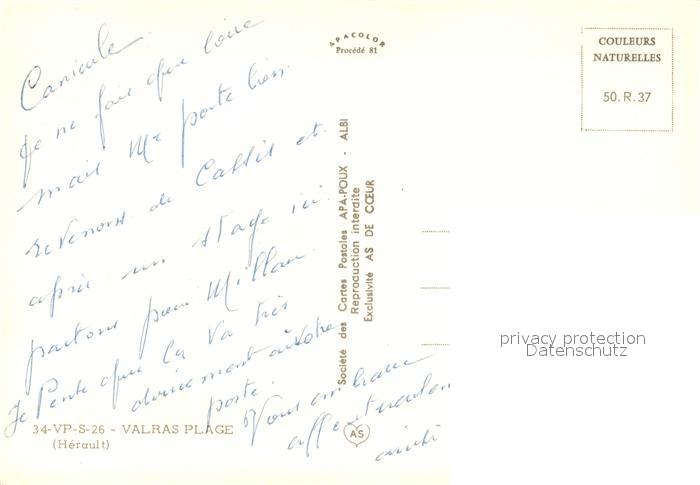 Canicule.
Je ne fais que boire
mais Me porte bien.
revenons de Cassis et
après un stage ici
partons pour Millau.
Je Pense que ça va très
doucement à votre
porte.
Vous embrasse
affectueusement
amitié
APACOLOR
Procédé 81
COULEURS
NATURELLES
50.R.37
Société des Cartes Postales APA-POUX - ALBI
Reproduction interdite
Exclusivité AS DE CŒUR
privacy protection
Datenschutz
34-VP-S-26 - VALRAS PLAGE
(Hérault)
AS